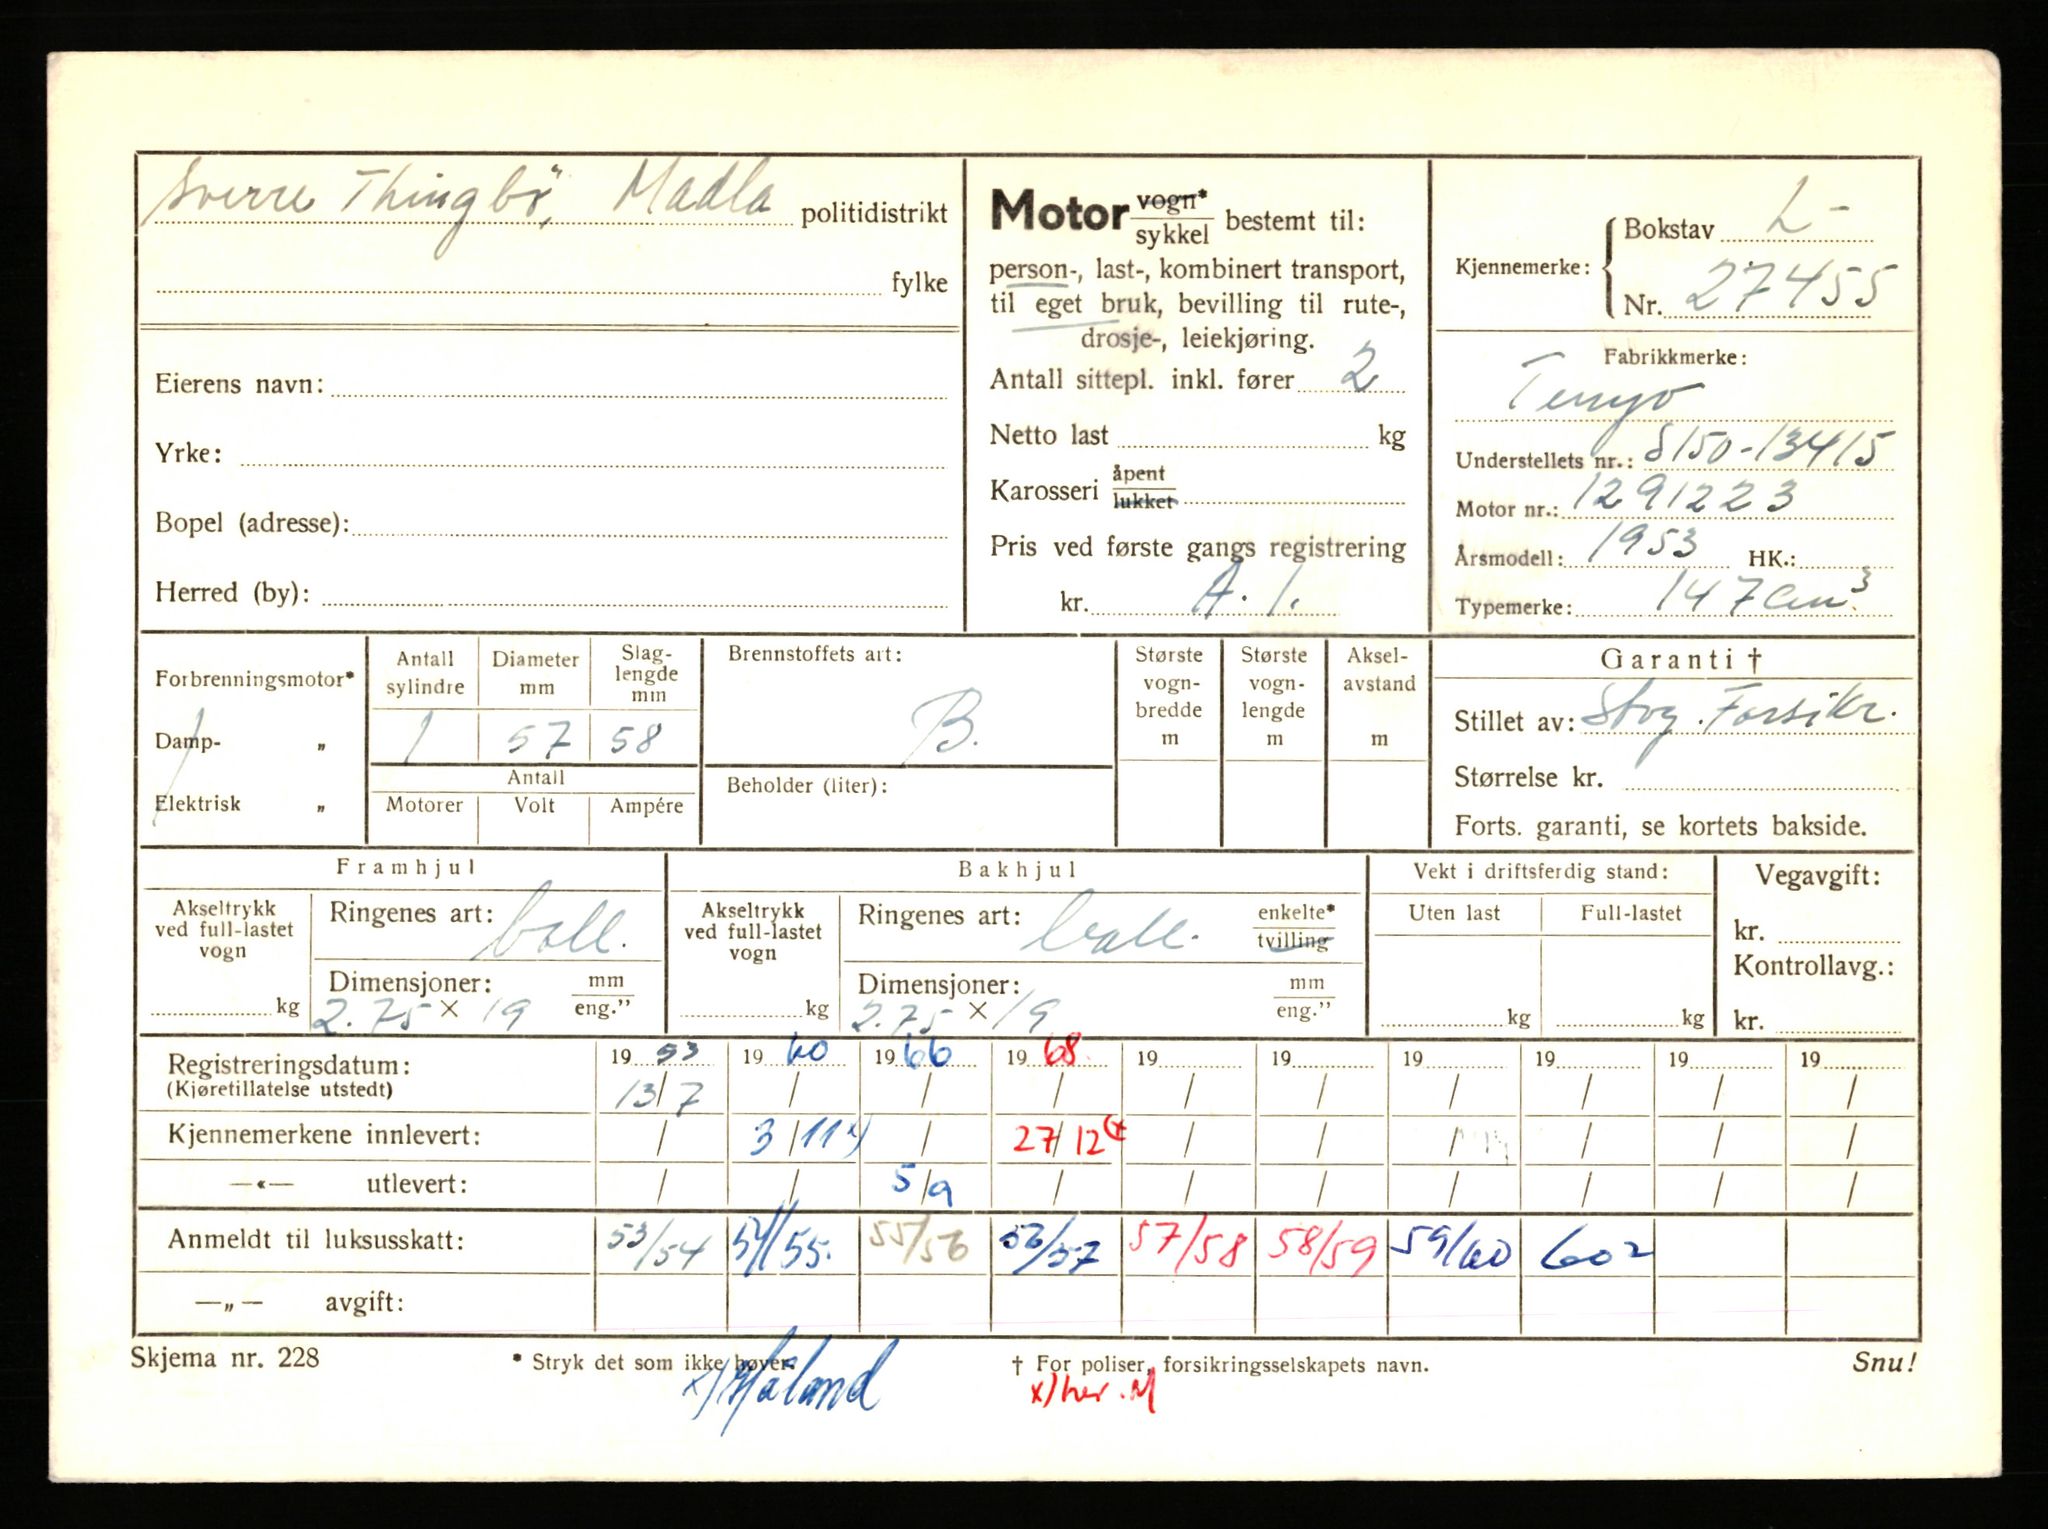 Sverre Thingbö, Madla politidistrikt
fylke
Eierens navn:
Yrke:
Bopel (adresse):
Herred (by):
Motor vogn* / sykkel bestemt til:
person-, last-, kombinert transport,
til eget bruk, bevilling til rute-,
drosje-, leiekjøring.
Antall sittepl. inkl. fører 2
Netto last kg
Karosseri åpent / lukket
Pris ved første gangs registrering
kr. A. 1.
Kjennemerke: Bokstav L-
Nr. 27455
Fabrikkmerke:
Understellets nr.: S150-13415
Motor nr.: 1291223
Årsmodell: 1953 HK.:
Typemerke: 147 cm³
Forbrenningsmotor*
Damp- „
Elektrisk „
Antall sylindre Diameter mm Slag-lengde mm
1 57 58
Antall
Motorer Volt Ampére
Brennstoffets art:
B.
Beholder (liter):
Største vogn-bredde m
Største vogn-lengde m
Aksel-avstand m
Garanti †
Stillet av: Stvg. Forsikr.
Størrelse kr.
Forts. garanti, se kortets bakside.
Framhjul
Akseltrykk
ved full-lastet
vogn
kg
Ringenes art: ball.
Dimensjoner: mm / eng.”
2.75 × 19
Bakhjul
Akseltrykk
ved full-lastet
vogn
kg
Ringenes art: ball. enkelte* / tvilling
Dimensjoner: mm / eng.”
2.75 × 19
Vekt i driftsferdig stand:
Uten last Full-lastet
kg kg
Vegavgift:
kr.
Kontrollavg.:
kr.
Registreringsdatum: 19 53 19 60 19 66 19 68. 19 19 19 19 19 19
(Kjøretillatelse utstedt) 13/7 / / / / / / / / /
Kjennemerkene innlevert: / 3/11 x) / 27/12 (x / / / / / /
—«— utlevert: / / 5/9 / / / / / / /
Anmeldt til luksusskatt: 53/54 54/55. 55/56 56/57 57/58 58/59 59/60 602
—„— avgift:
Skjema nr. 228 * Stryk det som ikke høver. † For poliser, forsikringsselskapets navn. Snu!
x) her. M